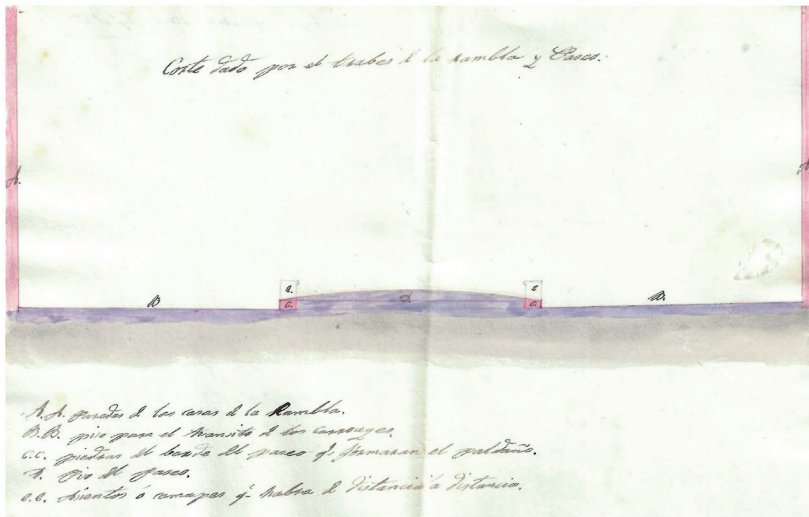 Corte dado por el trabes d la rambla y Paseo.
A.
A
B
e.
c.
d
e
c.
B.
A.A. paredes d las casas d la Rambla.
B.B. piso para el transito d los carruages.
c.c. piedras del borde del paseo q. formaran el peldaño.
d. Piso del paseo.
e.e. asientos ó q. habra d distancia á distancia.